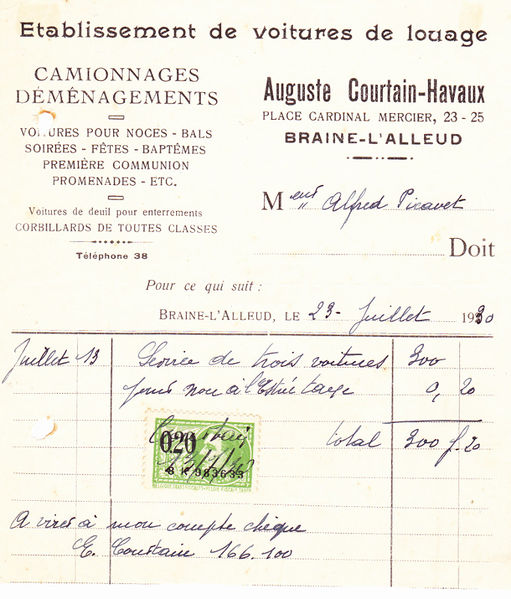 Etablissement de voitures de louage
CAMIONNAGES
DÉMÉNAGEMENTS
VOITURES POUR NOCES - BALS
SOIRÉES - FÊTES - BAPTÊMES
PREMIÈRE COMMUNION
PROMENADES - ETC.
Voitures de deuil pour enterrements
CORBILLARDS DE TOUTES CLASSES
Téléphone 38
Auguste Courtain-Havaux
PLACE CARDINAL MERCIER, 23 - 25
BRAINE-L'ALLEUD
M Alfred Picavet
Doit
Pour ce qui suit :
BRAINE-L'ALLEUD, LE 23 - Juillet 1930
Juillet 13 de trois voitures 300
0, 20
total 300 f. 20
0.20
8 K 983633
A virer à mon compte chèque
E. Courtain 166.100